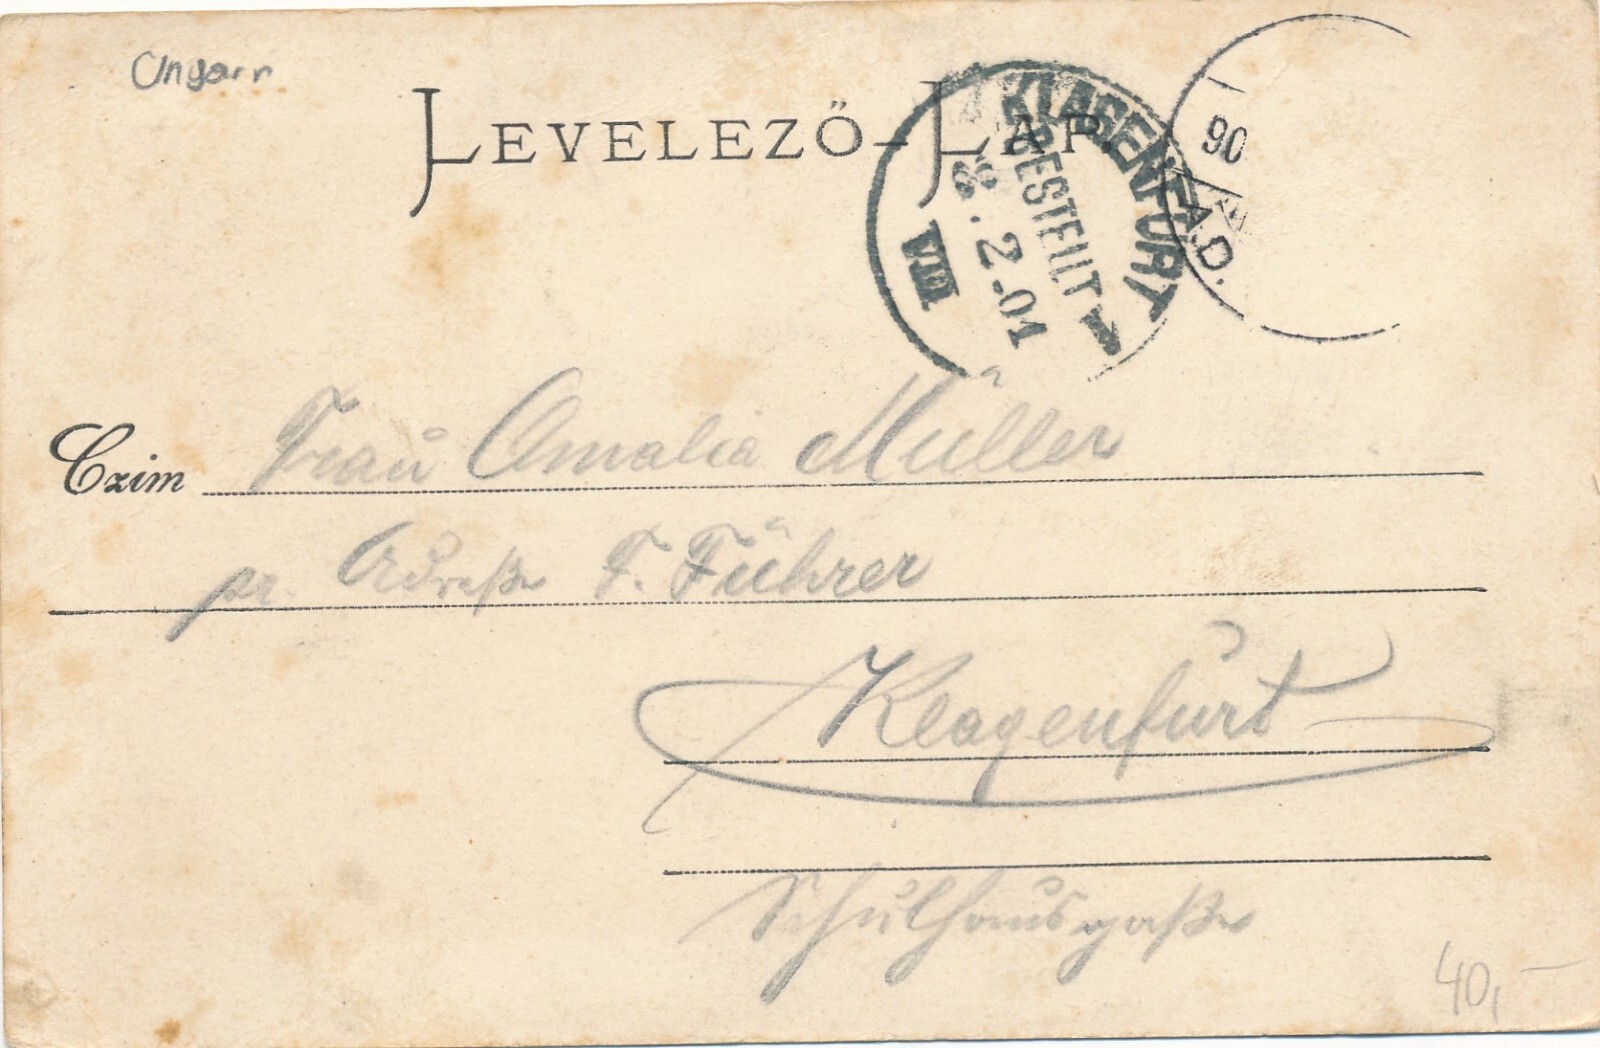 Ungarn
LEVELEZŐ-LAP.
KLAGENFURT 1
BESTELLT
8.2.01
VIII
90
A.D.
Czim Frau Amalia Müller
pr. Adreße F. Führer
Klagenfurt
Schulhausgaße
40,-